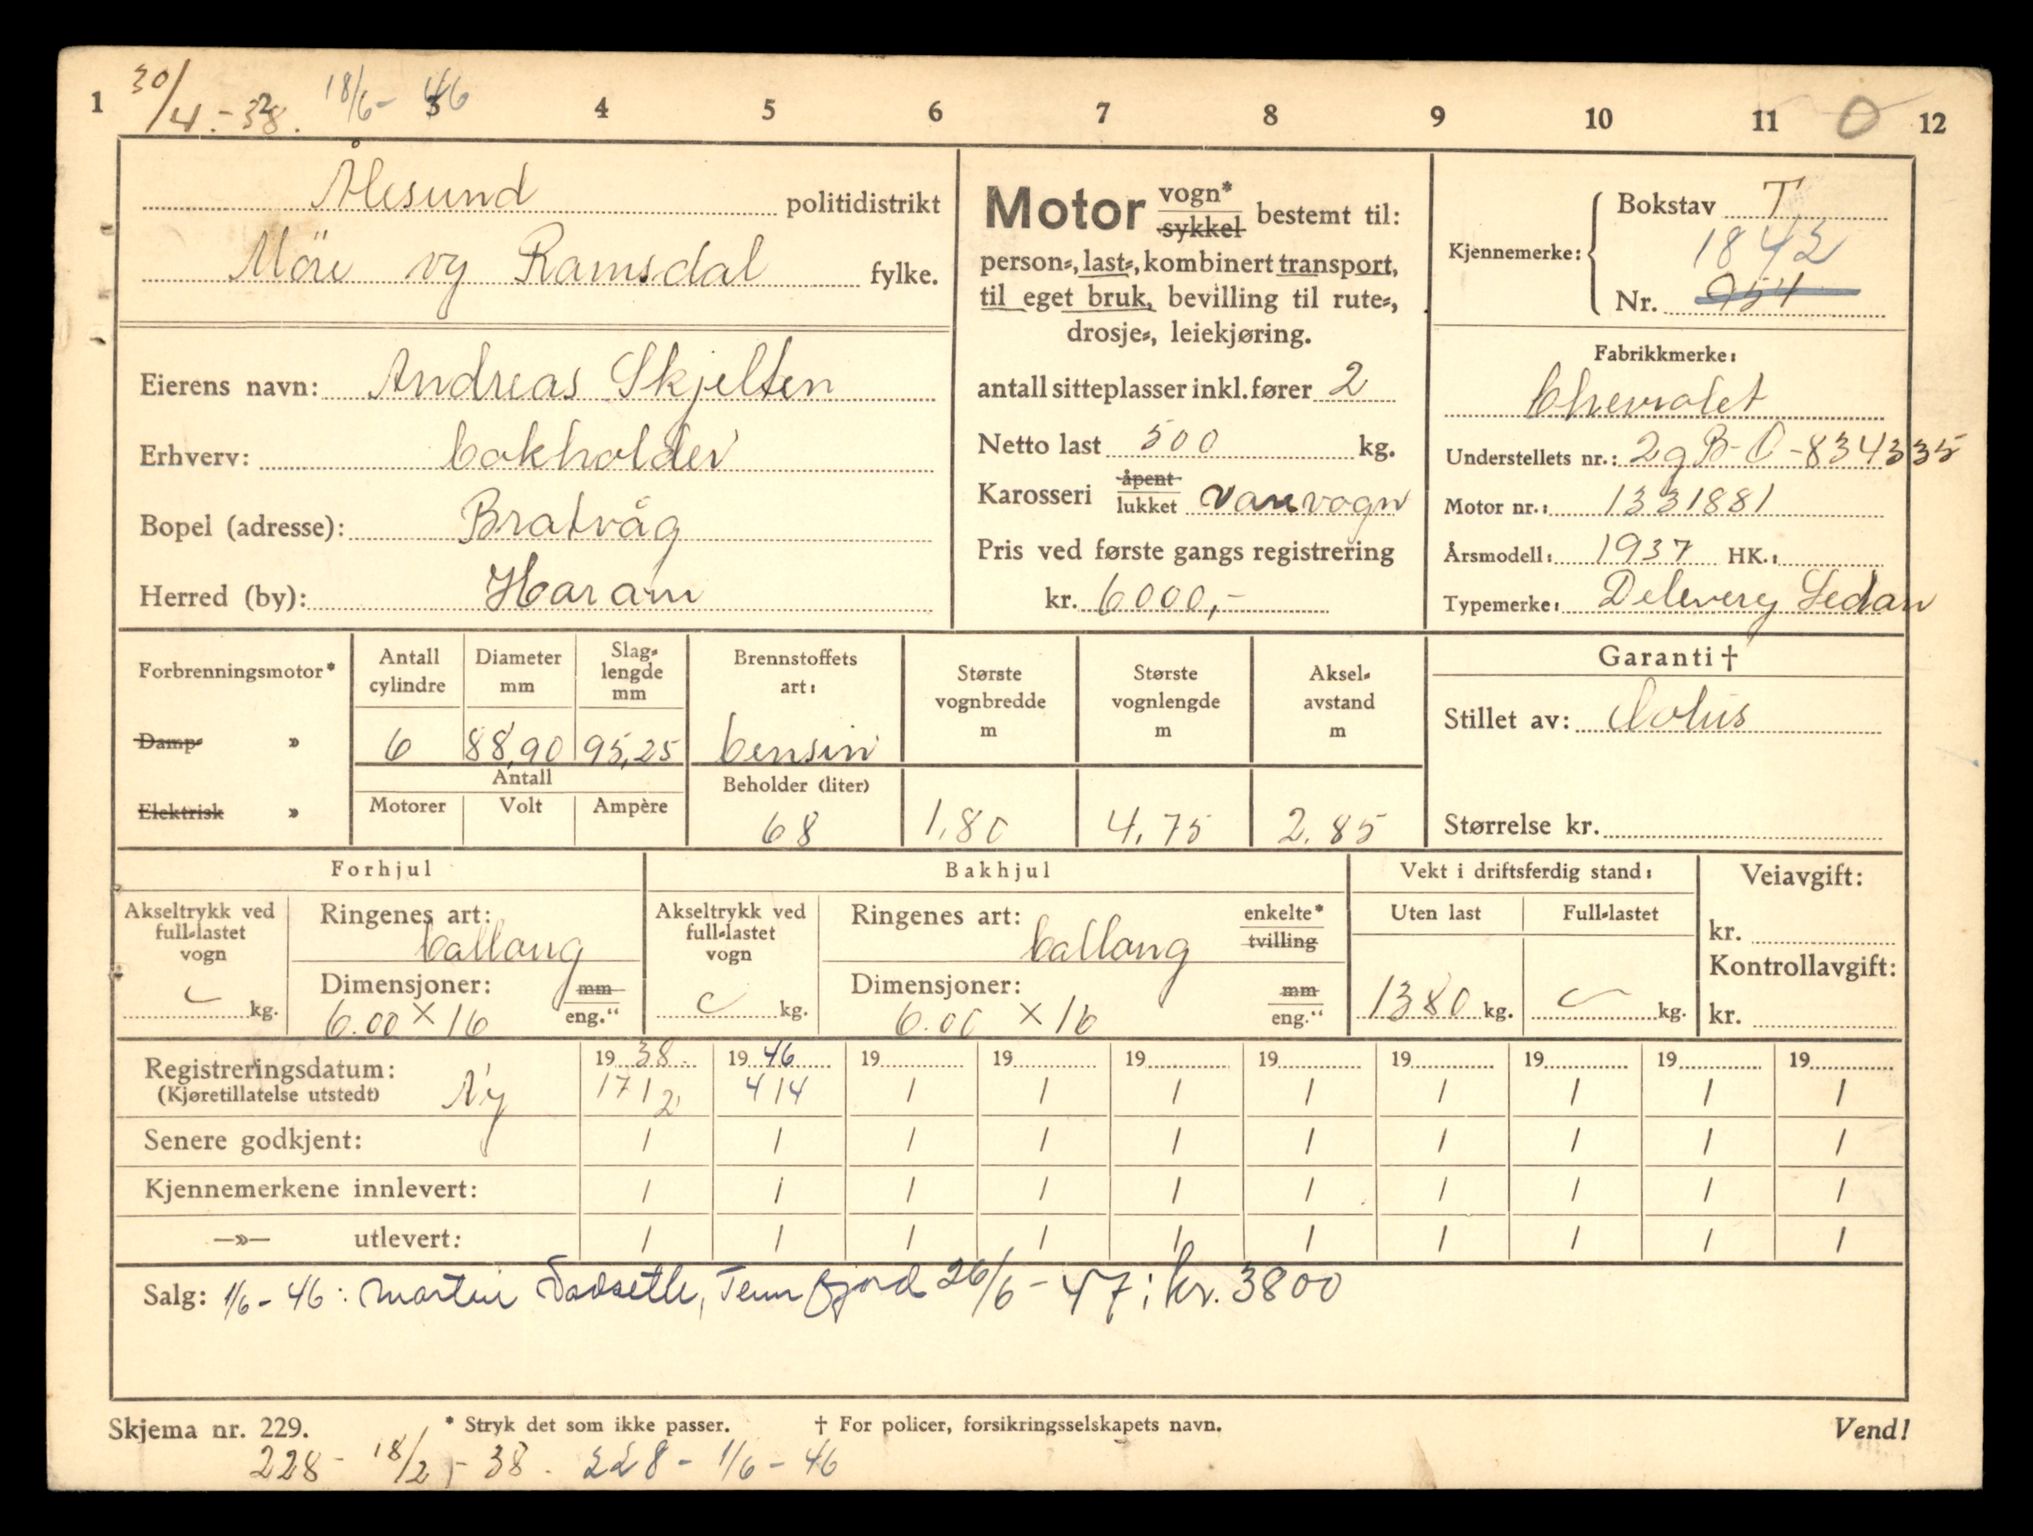 1 2 3 4 5 6 7 8 9 10 11 12
30/4.-38. 18/6-46 0
Ålesund politidistrikt
Möre og Romsdal fylke.
Eierens navn: Andreas Skjelten
Erhverv: bokholder
Bopel (adresse): Bratvåg
Herred (by): Haram
Motor vogn* sykkel bestemt til:
person-, last-, kombinert transport,
til eget bruk, bevilling til rute-,
drosje-, leiekjøring.
antall sitteplasser inkl. fører 2
Netto last 500 kg.
Karosseri åpent lukket varevogn
Pris ved første gangs registrering
kr. 6000,-
Kjennemerke: Bokstav T
1842
Nr. 954
Fabrikkmerke:
Chevrolet
Understellets nr.: 2gB-C-834335
Motor nr.: 1331881
Årsmodell: 1937 HK.:
Typemerke: Delevery Sedan
Forbrenningsmotor*
Damp- »
Elektrisk »
Antall cylindre 6
Diameter mm 88,90
Slag-lengde mm 95,25
Antall
Motorer Volt Ampère
Brennstoffets art: bensin
Beholder (liter) 68
Største vognbredde m 1,80
Største vognlengde m 4,75
Aksel-avstand m 2,85
Garanti †
Stillet av: Polis
Størrelse kr.
Forhjul
Akseltrykk ved full-lastet vogn kg.
Ringenes art: ballong
Dimensjoner: 6.00 × 16 mm eng."
Bakhjul
Akseltrykk ved full-lastet vogn kg.
Ringenes art: ballong enkelte* tvilling
Dimensjoner: 6.00 × 16 mm eng."
Vekt i driftsferdig stand:
Uten last 1380 kg.
Full-lastet kg.
Veiavgift:
kr.
Kontrollavgift:
kr.
19 38. 19 46 19 19 19 19 19 19 19 19
Registreringsdatum:
(Kjøretillatelse utstedt) Ny 17/2 4/4 / / / / / / / /
Senere godkjent: / / / / / / / / / /
Kjennemerkene innlevert: / / / / / / / / / /
—»— utlevert: / / / / / / / / / /
Salg: 1/6-46: Martin Tennfjord 26/6-47: kr. 3800
Skjema nr. 229. * Stryk det som ikke passer. † For policer, forsikringsselskapets navn. Vend!
228 - 18/2,- 38. 228 - 1/6 - 46